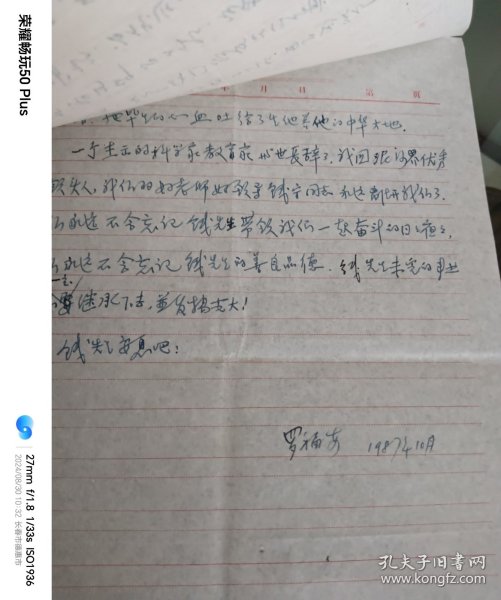 荣耀畅玩50 Plus
27mm f/1.8 1/33s ISO1936
2024/08/30 10:32 长春市德惠市
年 月 日 第 页
他毕生的心血吐给了生他养他的中华大地.
一个真正的科学家教育家与世长辞了. 我国 界优秀
失人, 我们的好老师好 同志永远离开我们了.
永远不会忘记钱先生带领我们一起奋斗的日日夜夜,
永远不会忘记钱先生的善良品德. 钱先生未完的事业
要继承下去, 并发扬光大!
钱先生安息吧:
罗福安 1987年10月
孔夫子旧书网
www.kongfz.com